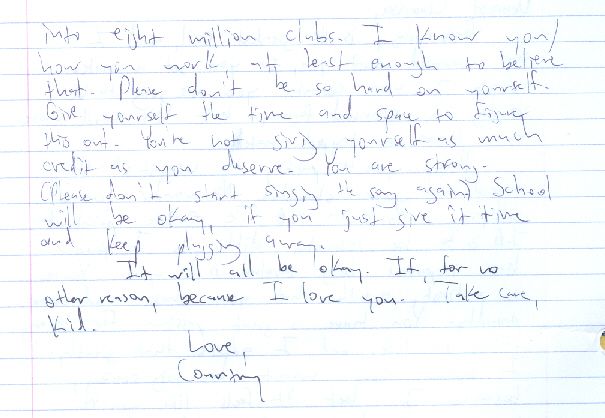 into eight million clubs. I know you/
how you work, at least enough to believe
that. Please don't be so hard on yourself.
Give yourself the time and space to figure
this out. You're not giving yourself as much
credit as you deserve. You are strong.
(Please don't start singing the song again) School
will be okay, if you just give it time
and keep plugging away.
It will all be okay. If, for no
other reason, because I love you. Take care,
kid.
Love,